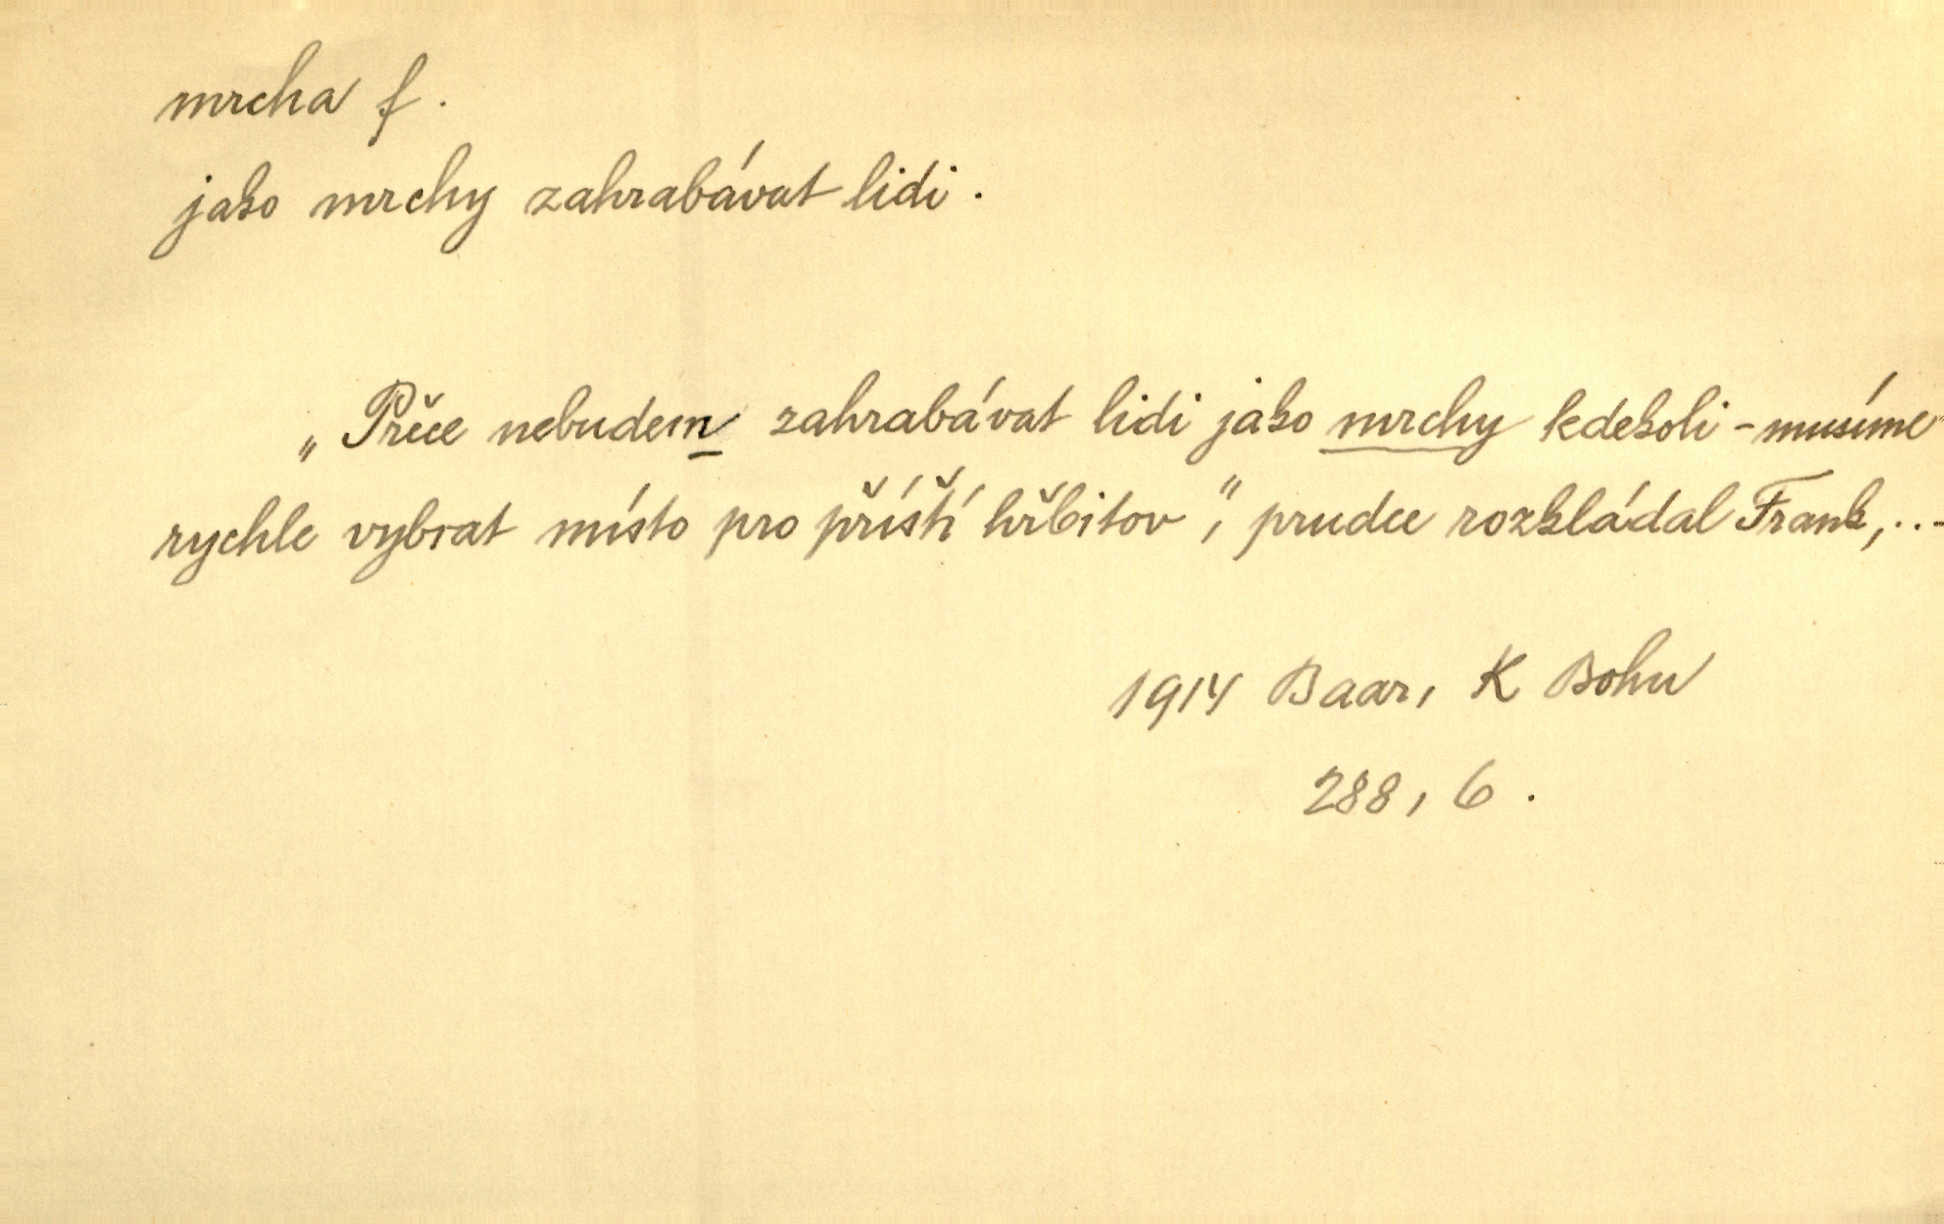 mrcha f.
jako mrchy zahrabávat lidi.
„Přece nebudem zahrabávat lidi jako mrchy kdekoli - musíme
rychle vybrat místo pro příští hřbitov“, prudce rozkládal Frank,...
1914 Baar, K Bohu
288, 6.